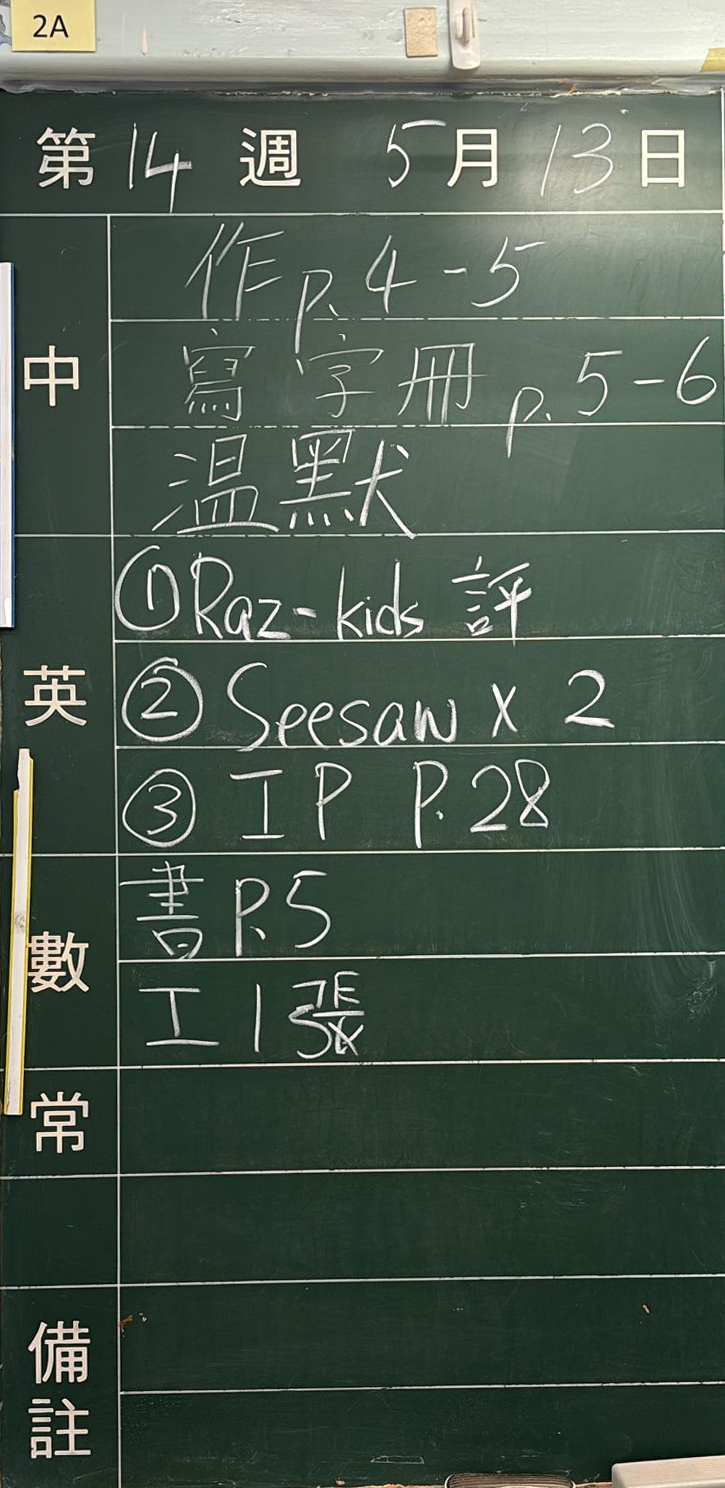 2A
第 14 週 5月 13日
中
作 p. 4-5
寫字冊 p. 5-6
温默
英
① Raz-kids 評
② Seesaw x 2
③ IP P.28
數
書 P.5
工 1 張
常
備註